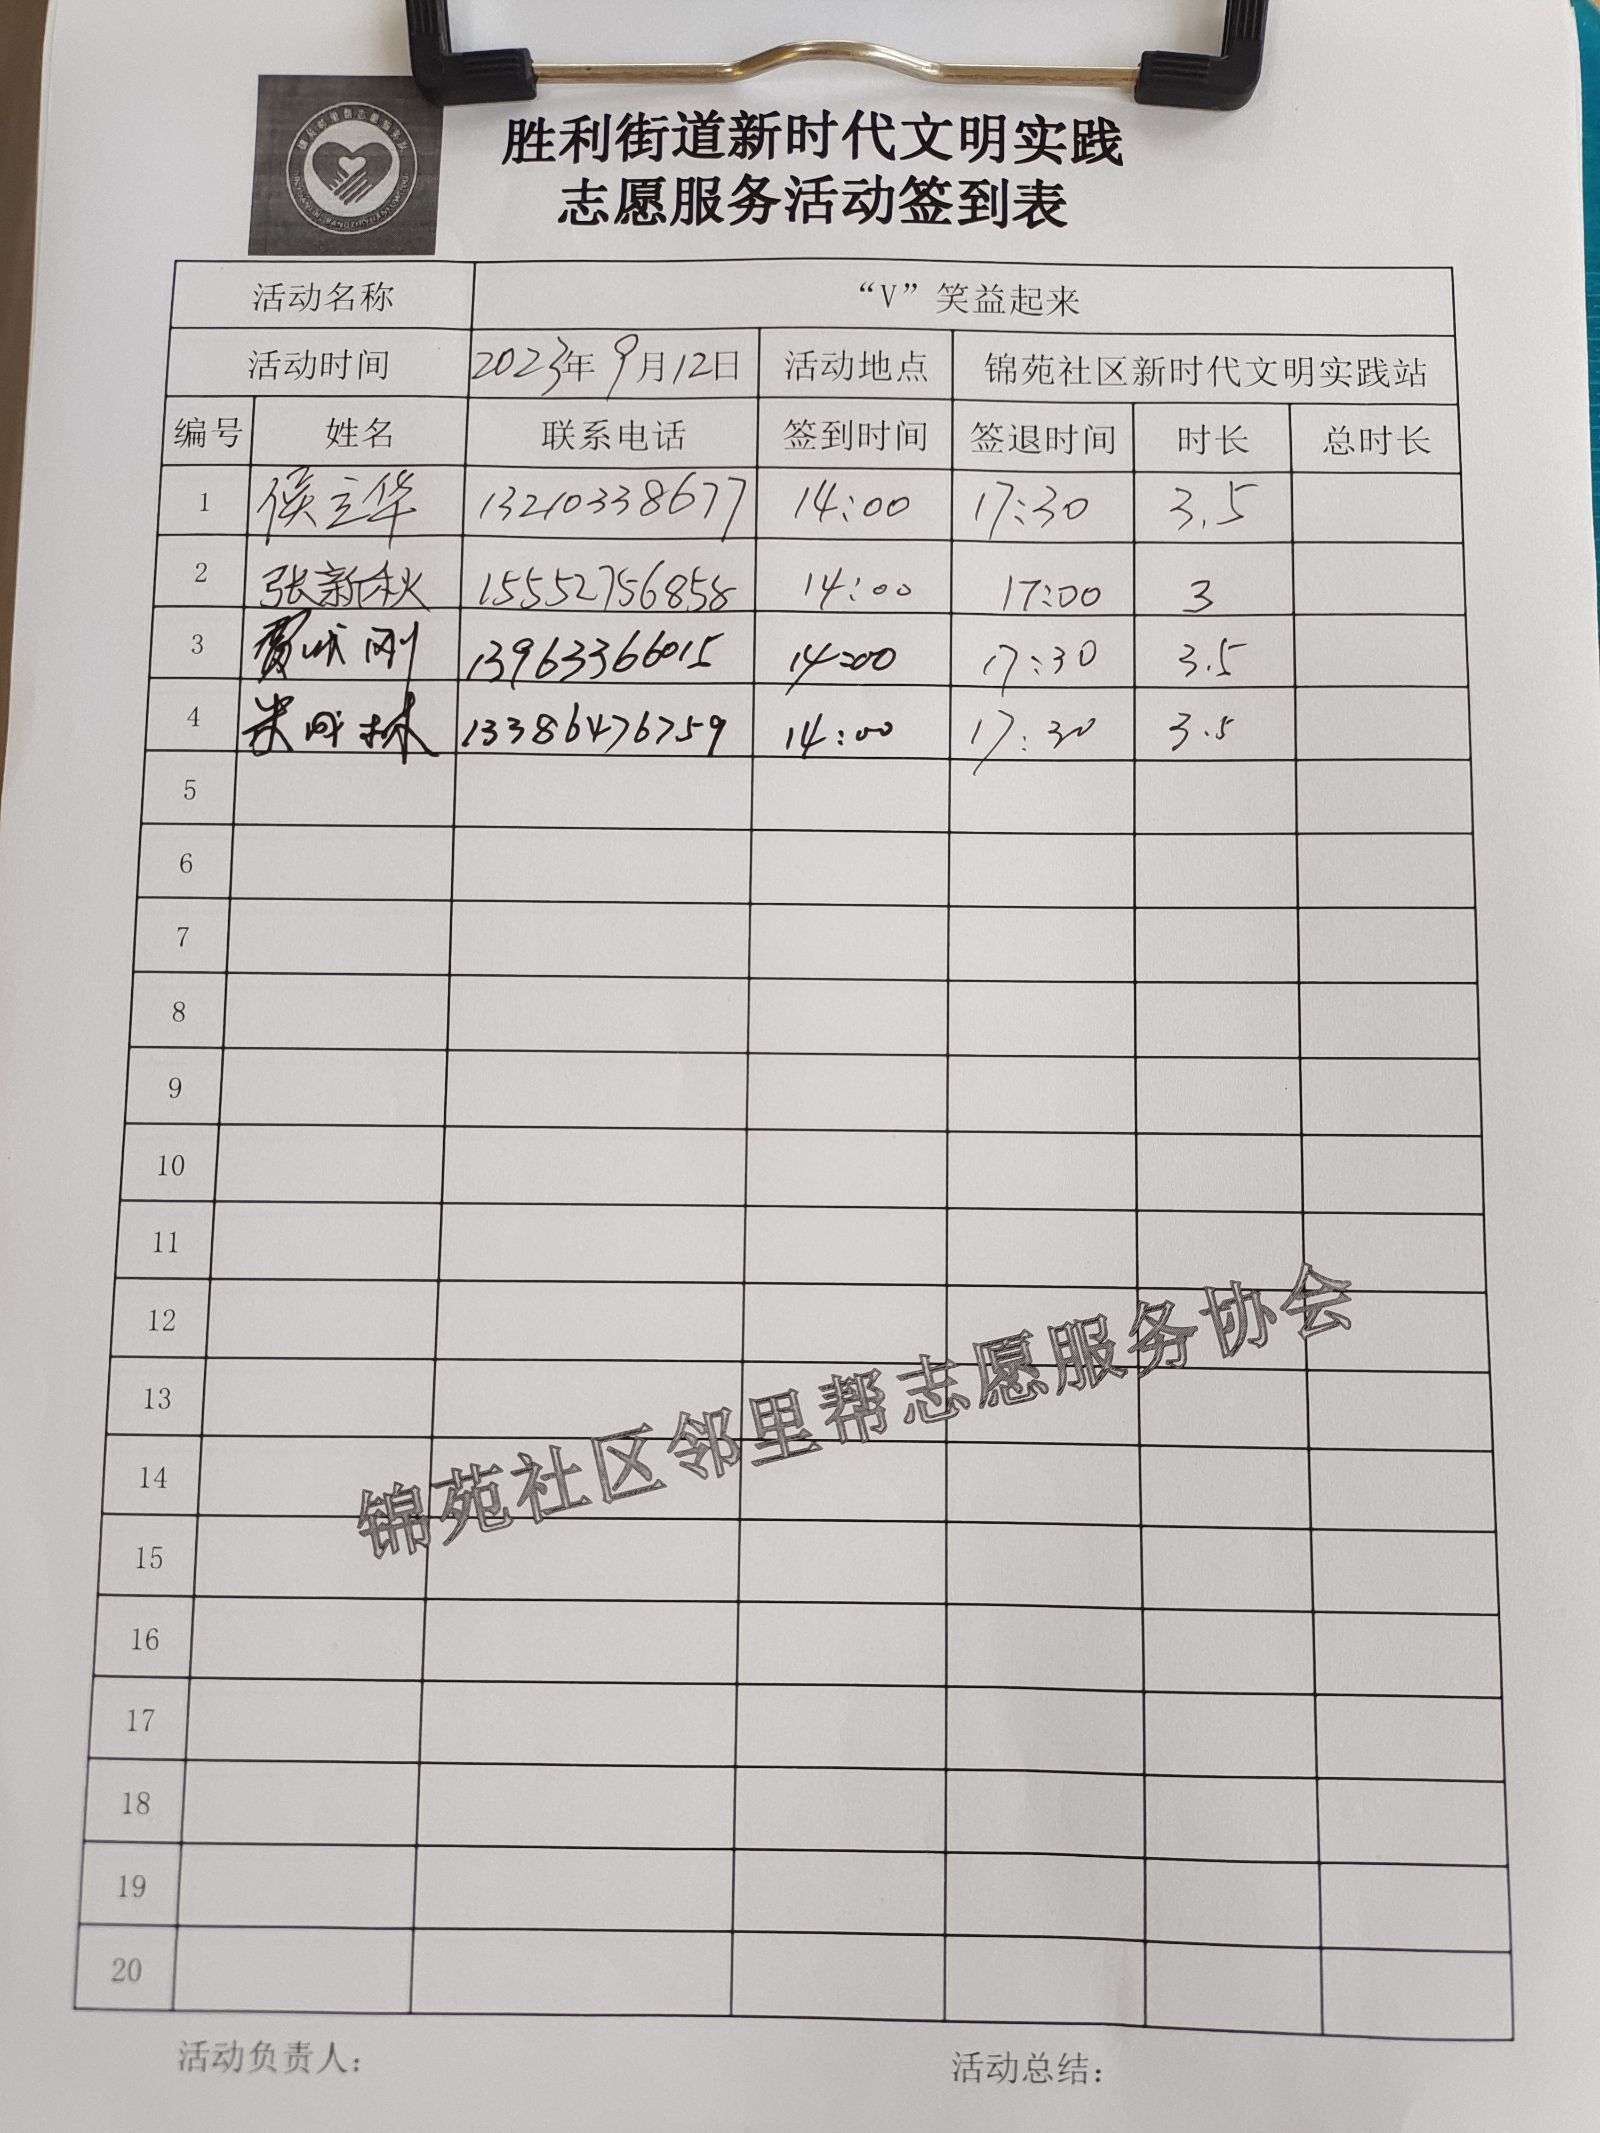 胜利街道新时代文明实践
志愿服务活动签到表
活动名称 “V”笑益起来
活动时间 2023年9月12日 活动地点 锦苑社区新时代文明实践站
编号 姓名 联系电话 签到时间 签退时间 时长 总时长
1 侯立华 13210338677 14:00 17:30 3.5
2 张新秋 15552756858 14:00 17:00 3
3 刚 13963366015 14:00 17:30 3.5
4 林 13386476759 14:00 17:30 3.5
5
6
7
8
9
10
11
12
13
14
15
16
17
18
19
20
锦苑社区邻里帮志愿服务协会
活动负责人： 活动总结：